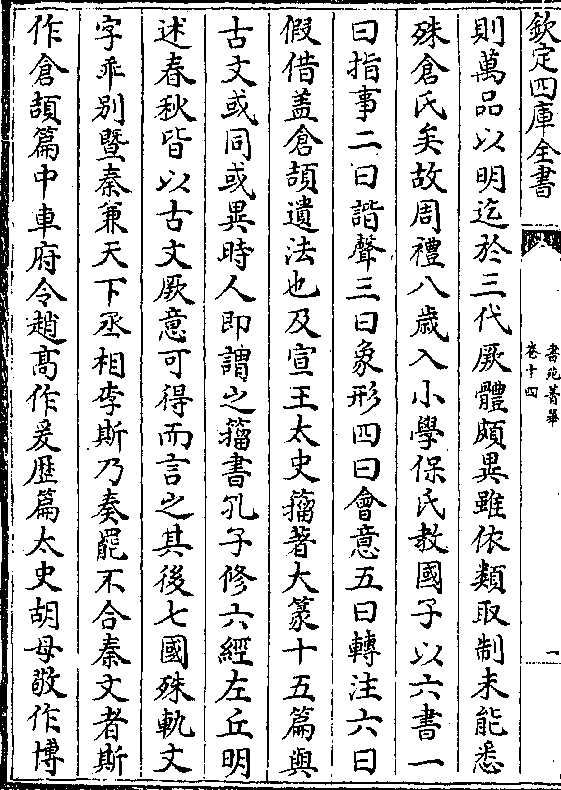 欽定四庫全書
書苑菁華
卷十四
一
則萬品以明迄於三代厥體頗異雖依類取制未能悉
殊倉氏矣故周禮八歲入小學保氏教國子以六書一
曰指事二曰諧聲三曰象形四曰會意五曰轉注六曰
假借盖倉頡遺法也及宣王太史籀著大篆十五篇與
古文或同或異時人即謂之籀書孔子修六經左丘明
述春秋皆以古文厥意可得而言之其後七國殊軌文
字乖别暨秦兼天下丞相李斯乃奏罷不合秦文者斯
作倉頡篇中車府令趙髙作爰歴篇太史胡母敬作博